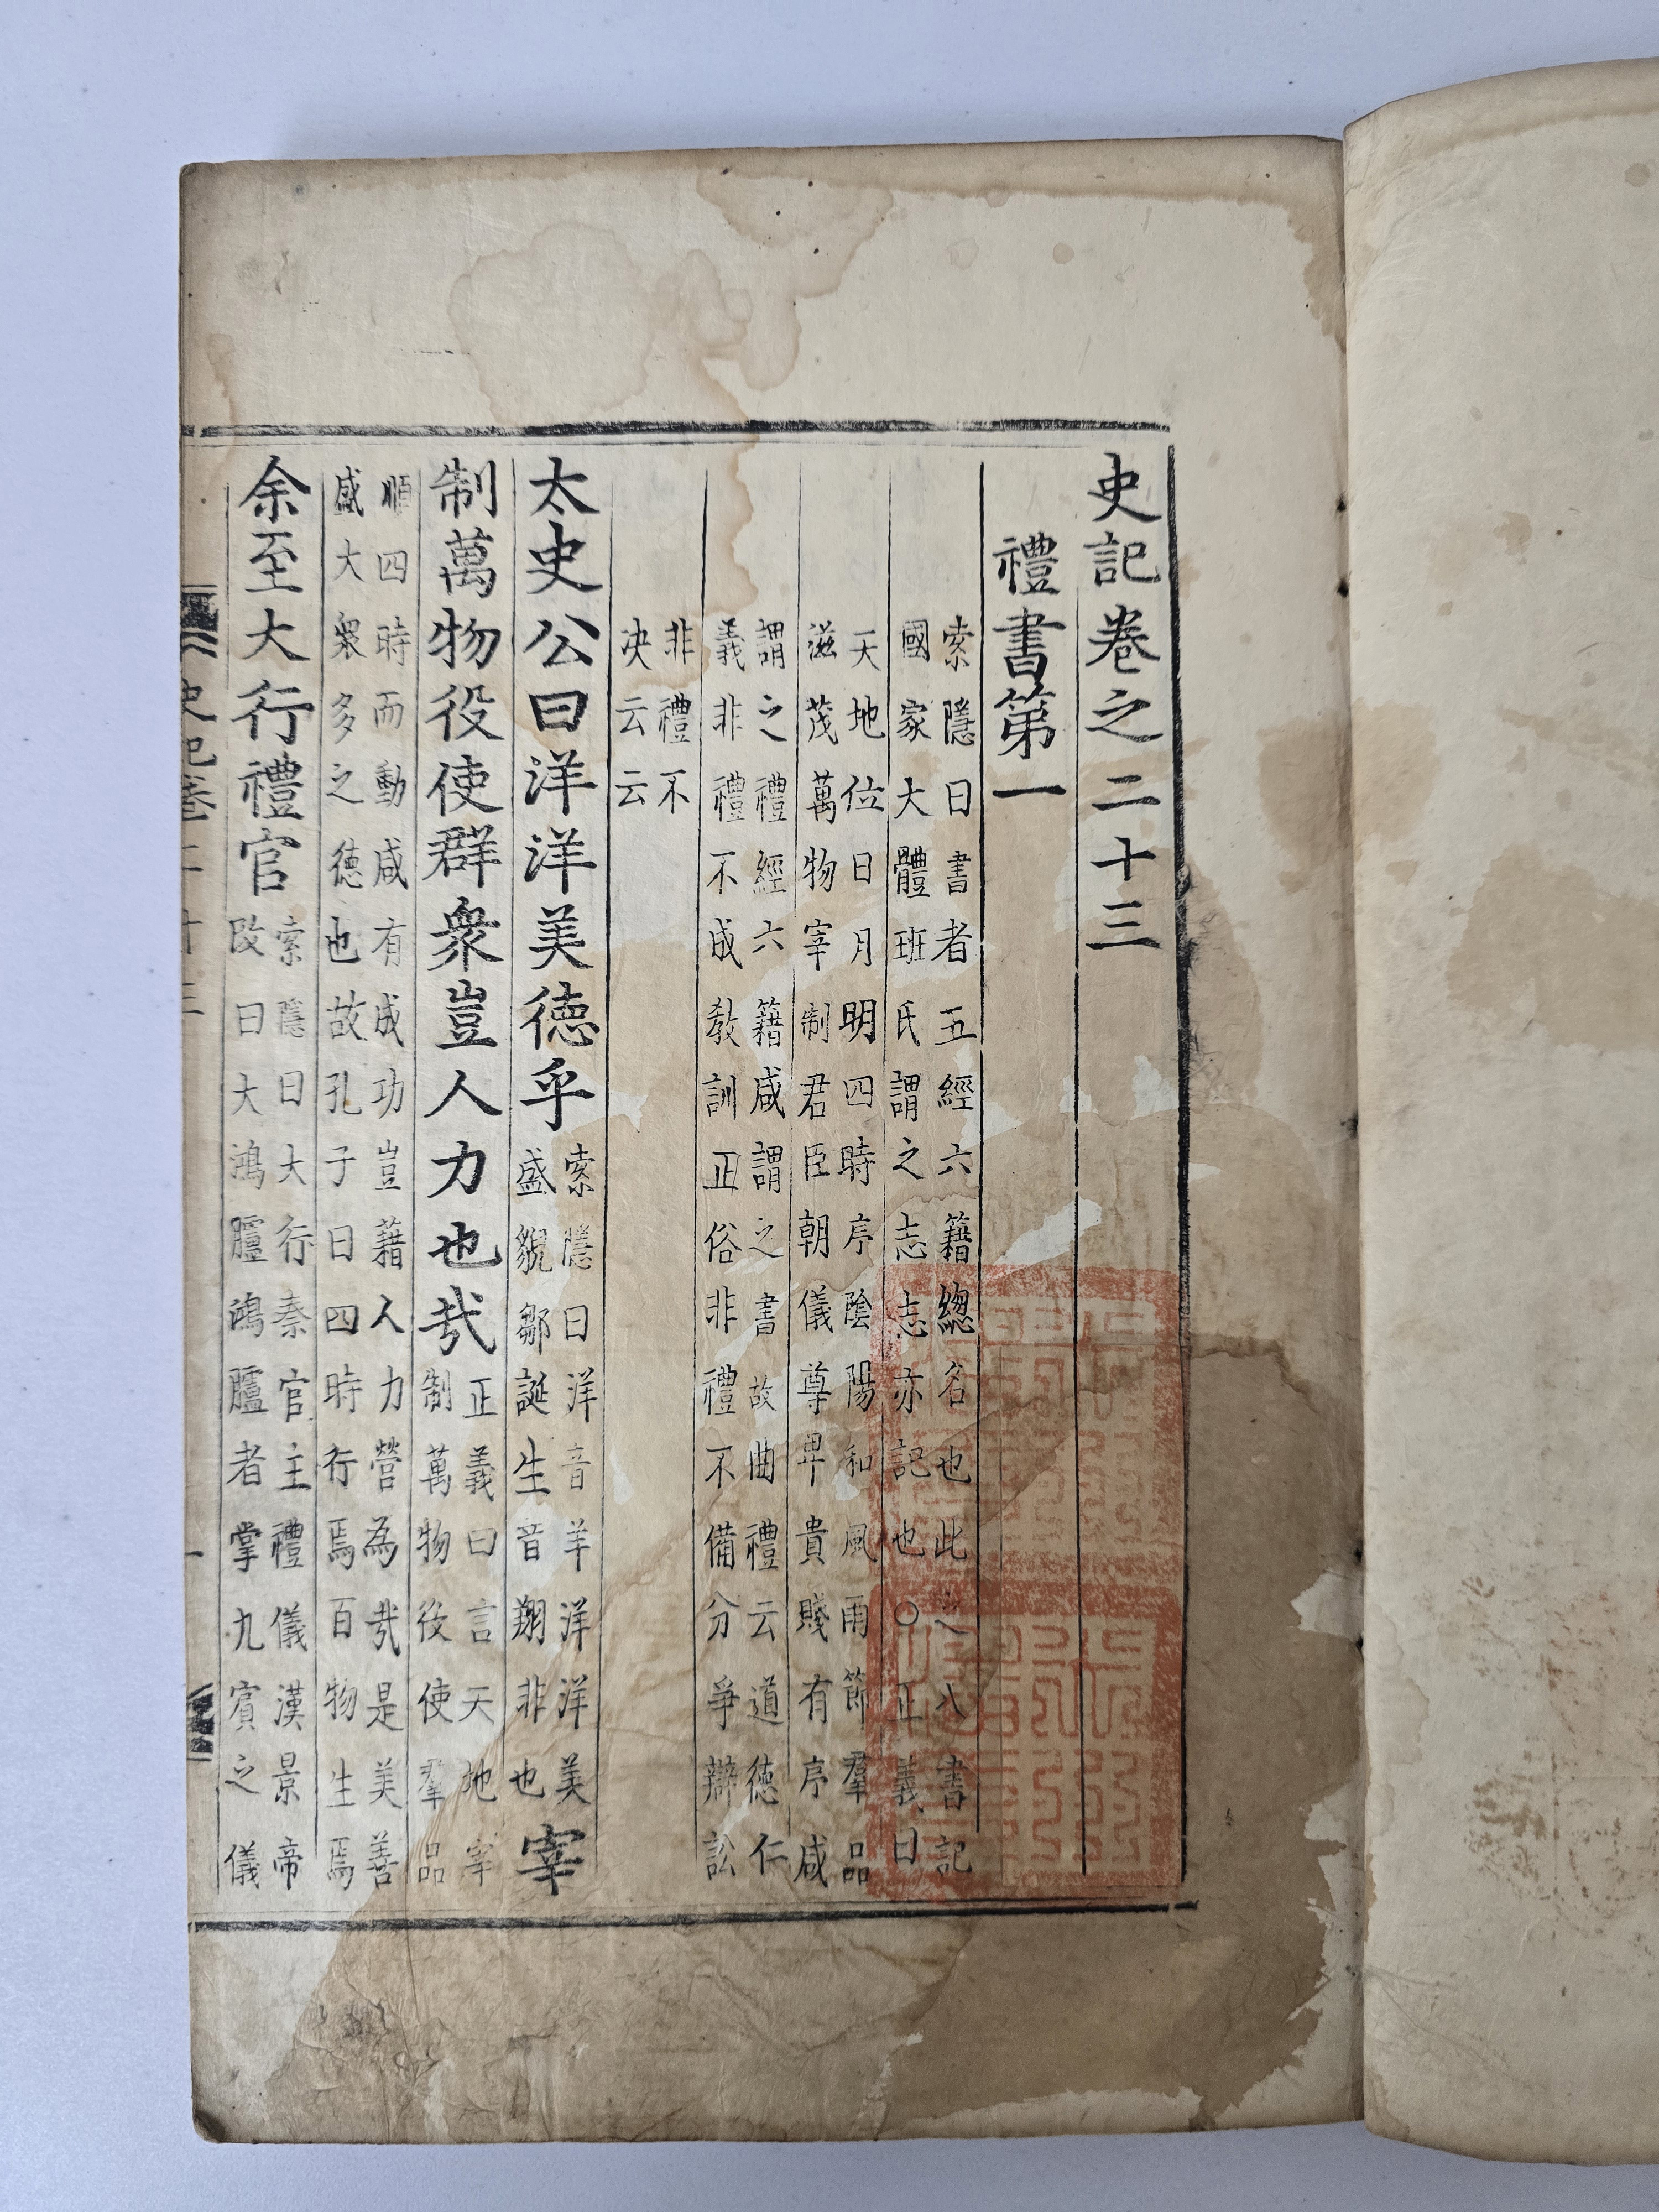 史記卷之二十三
禮書第一
索隱曰書者五經六籍總名也此之八書記
國家大體班氏謂之志志亦記也○正義曰
天地位日月明四時序陰陽和風雨節羣品
滋茂萬物宰制君臣朝儀尊卑貴賤有序咸
謂之禮禮經六籍咸謂之書故曲禮云道德仁
義非禮不成教訓正俗非禮不備分爭辯訟
非禮不
决云云
太史公曰洋洋美德乎
索隱曰洋音羊洋洋美
盛貌鄒誕生音翔非也
宰
制萬物役使群衆豈人力也㢤
正義曰言天地宰
制萬物役使羣品
順四時而動咸有成功豈藉人力營為㢤是美善
盛大衆多之德也故孔子曰四時行焉百物生焉
余至大行禮官
索隱曰大行秦官主禮儀漢景帝
改曰大鴻臚鴻臚者掌九賓之儀
史記卷二十三
一